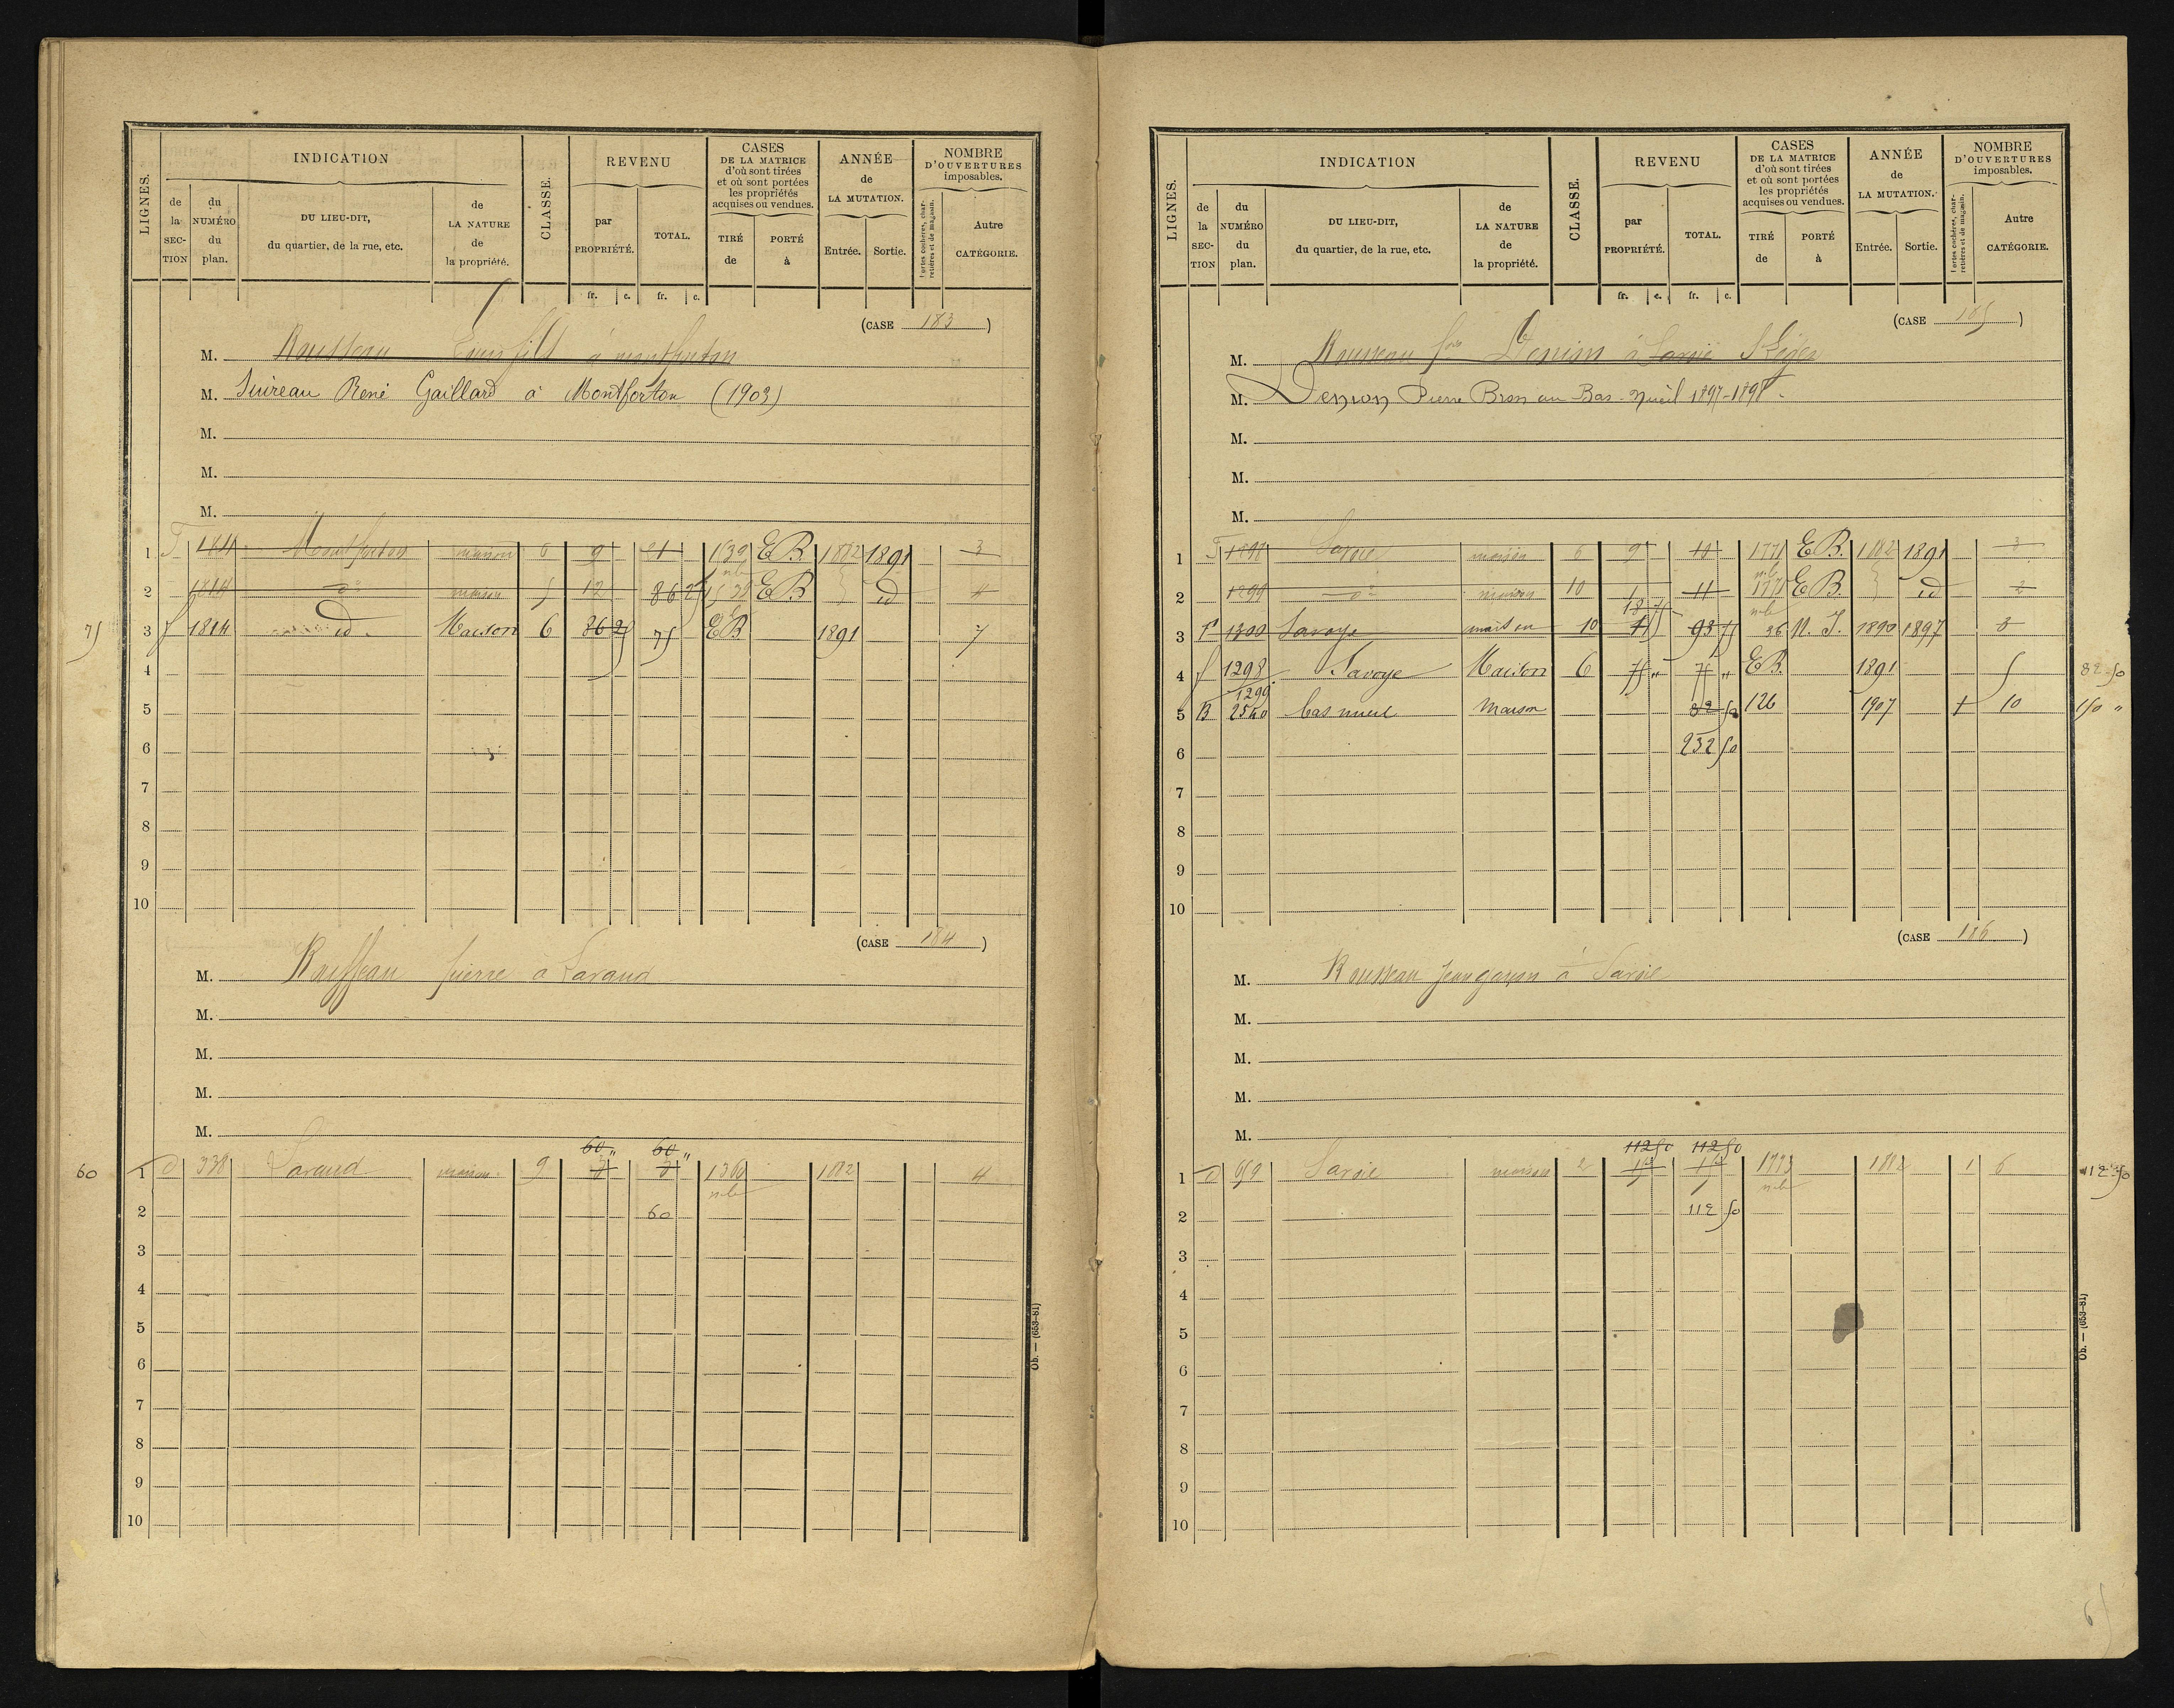 LIGNES.
INDICATION
de la SECTION
du NUMÉRO du plan.
DU LIEU-DIT, du quartier, de la rue, etc.
de LA NATURE de la propriété.
CLASSE.
REVENU
par PROPRIÉTÉ.
TOTAL.
fr. c. fr. c.
CASES DE LA MATRICE d'où sont tirées et où sont portées les propriétés acquises ou vendues.
TIRÉ de
PORTÉ à
ANNÉE de LA MUTATION.
Entrée. Sortie.
NOMBRE D'OUVERTURES imposables.
Portes cochères, charretières et de magasin.
Autre CATÉGORIE.
(CASE 183)
M. Rousseau Louis fils à montforton
M. Suireau René Gaillard à Montforton (1903)
M.
M.
M.
1 1811 Montforton maison 6 9 21 1539 EB 1882 1891 3
2 1814 do maison 5 12 86 25 1539 EB id 4
75 3 f 1814 id. Maison 6 86 25 75 EB 1891 7
4
5
6
7
8
9
10
(CASE 184)
M. Rousseau pierre a Laraud
M.
M.
M.
M.
60 " 60 "
60 1 D 338 Laraud maison 9 7 7 1306 1882 4
nb
2 60
3
4
5
6
7
8
9
10
Ob. — (653-81)
LIGNES.
INDICATION
de la SECTION
du NUMÉRO du plan.
DU LIEU-DIT, du quartier, de la rue, etc.
de LA NATURE de la propriété.
CLASSE.
REVENU
par PROPRIÉTÉ.
TOTAL.
fr. c. fr. c.
CASES DE LA MATRICE d'où sont tirées et où sont portées les propriétés acquises ou vendues.
TIRÉ de
PORTÉ à
ANNÉE de LA MUTATION.
Entrée. Sortie.
NOMBRE D'OUVERTURES imposables.
Portes cochères, charretières et de magasin.
Autre CATÉGORIE.
(CASE 185)
M. Rousseau Denion à Savoie
M. Denion Pierre Bron au Bas-Nueil 1897-1898
M.
M.
M.
1 Savoie maison 6 9 10 1771 EB. 1882 1891 3
2 1299 do maison 10 1 11 1771 EB. id 2
18 75 nb
3 1300 Savoye maison 10 93 75 36 N. I. 1890 1897 3
4 f 1298 1299 Savoye Maison 6 75 " 75 " EB. 1891 5 82 50
5 B 2540 bas nueil Maison 82 50 126 1907 1 10 150 "
6 232 50
7
8
9
10
(CASE 186)
M. Rousseau Jean garçon à Savoie
M.
M.
M.
M.
112 50 112 50
1 D 659 Savoie maison 2 1773 1882 1 6 112 50
nb
2 112 50
3
4
5
6
7
8
9
10
Ob. — (653-81)